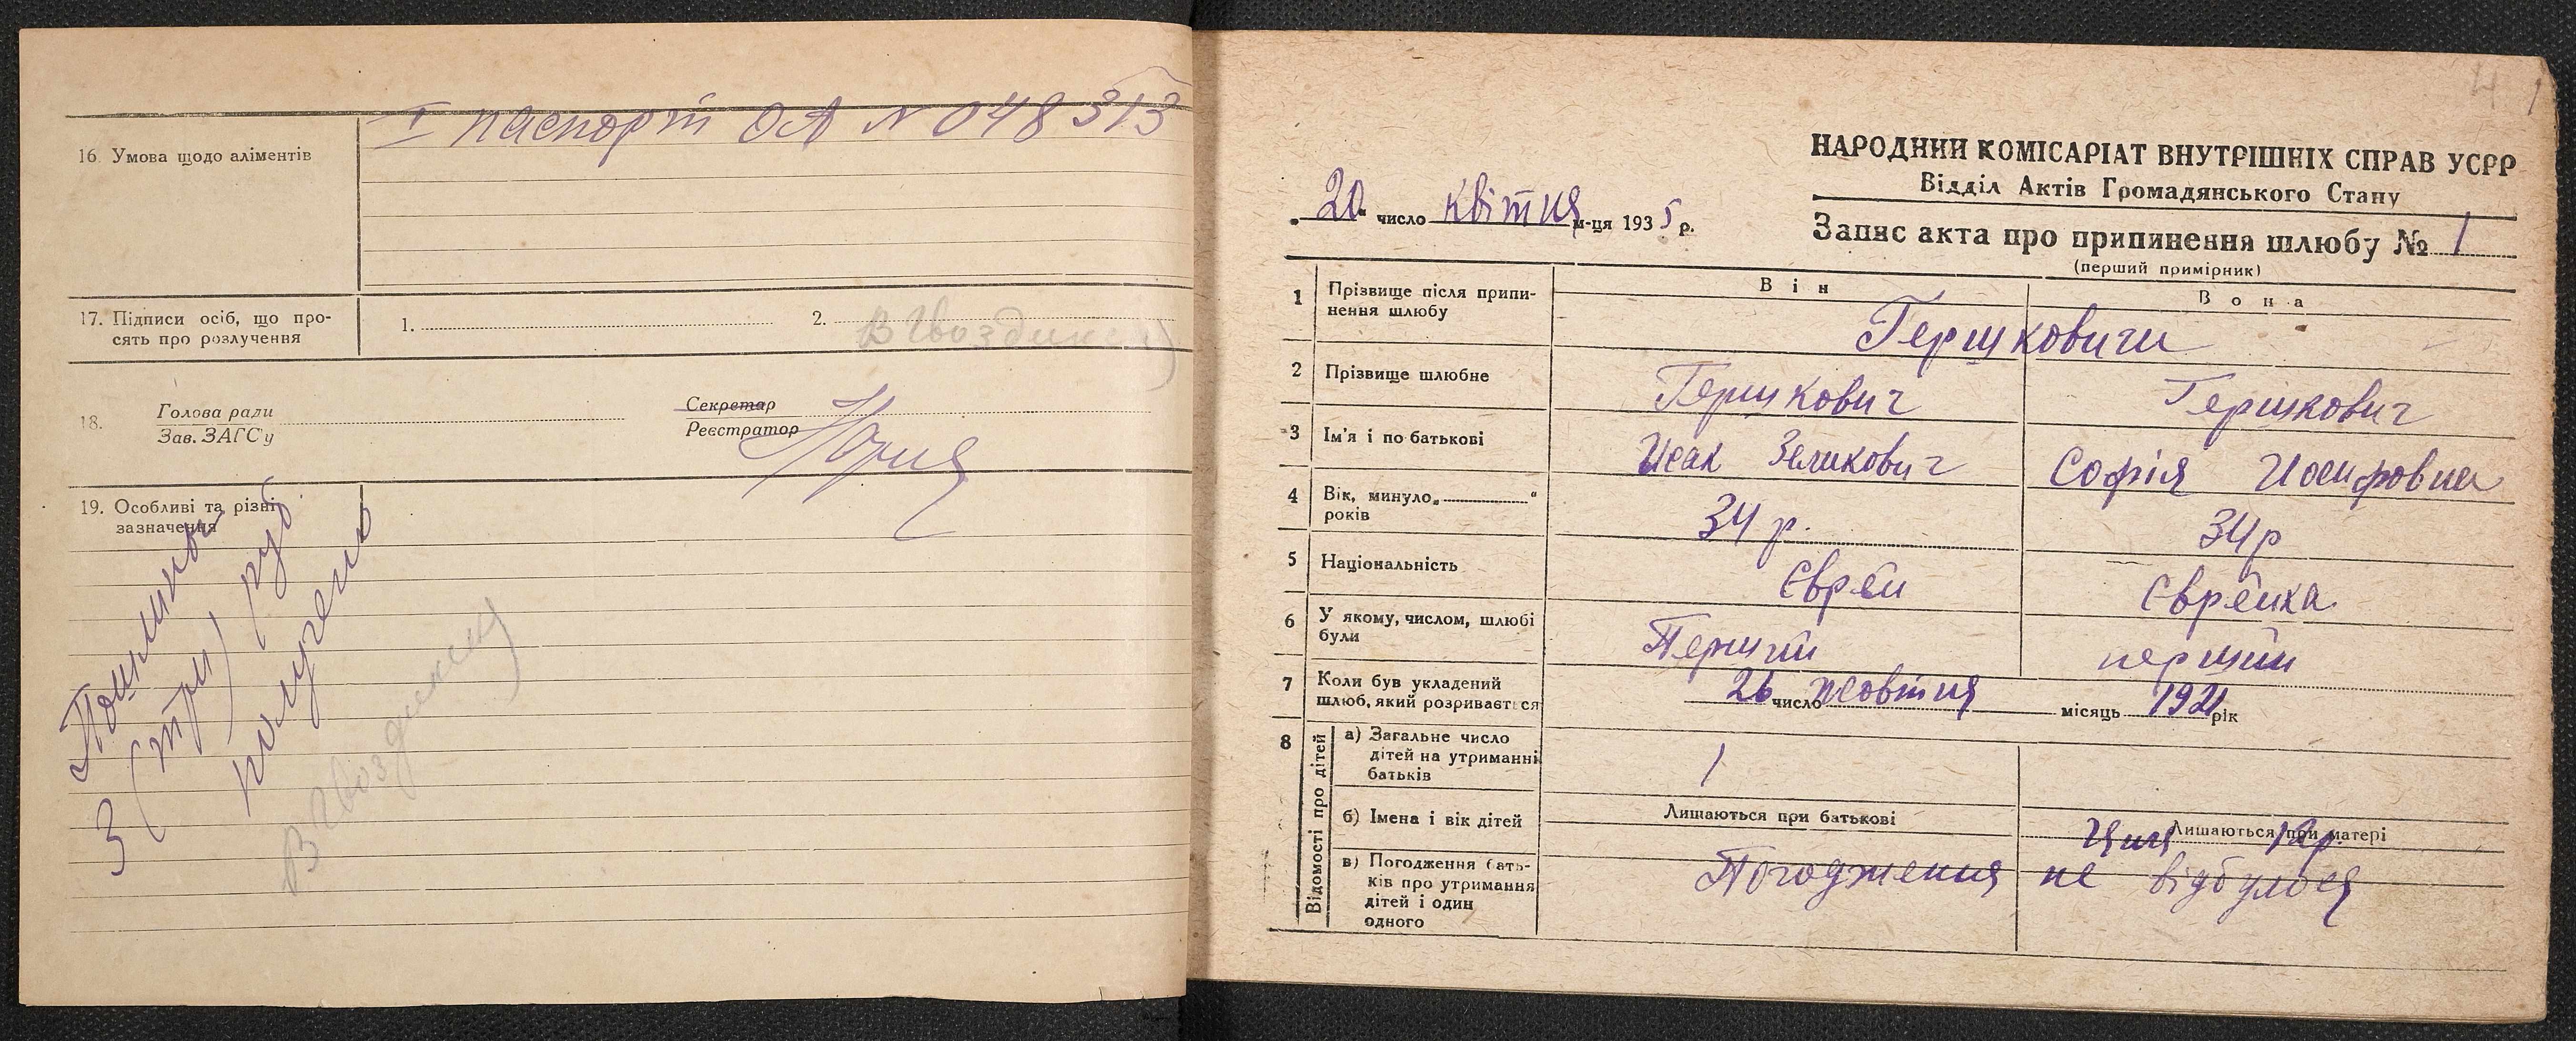 I паспорт ОА N 048313
16. Умова щодо аліментів
17. Підписи осіб, що про-
сять про розлучення
1.
2. В Гвоздик
18.
Голова ради
Зав. ЗАГС'у
Секретар
Реєстратор
19. Особливі та різні
зазначення
Пошлины
3 (три) руб
получено
4 1
НАРОДНИЙ КОМІСАРІАТ ВНУТРІШНІХ СПРАВ УСРР
Відділ Актів Громадянського Стану
„20“ число квітня м-ця 1935 р.
Запис акта про припинення шлюбу № 1
(перший примірник)
Він
Вона
1 Прізвище після припи-
нення шлюбу
Гершковичи
2 Прізвище шлюбне
Гершкович
Гершкович
3 Ім'я і по батькові
Исак Зеликович
Софія Иосифовна
4 Вік, минуло „ “
років
34 р.
34 р
5 Національність
Єврей
Єврейка
6 У якому, числом, шлюбі
були
Перший
перший
7 Коли був укладений
шлюб, який розривається
26 число жовтня місяць 1921 рік
8 Відомості про дітей
а) Загальне число
дітей на утриманні
батьків
1
б) Імена і вік дітей
Лишаються при батькові
Лишаються при матері
Циля 12 р.
в) Погодження бать-
ків про утримання
дітей і один
одного
Погодження не відбулося